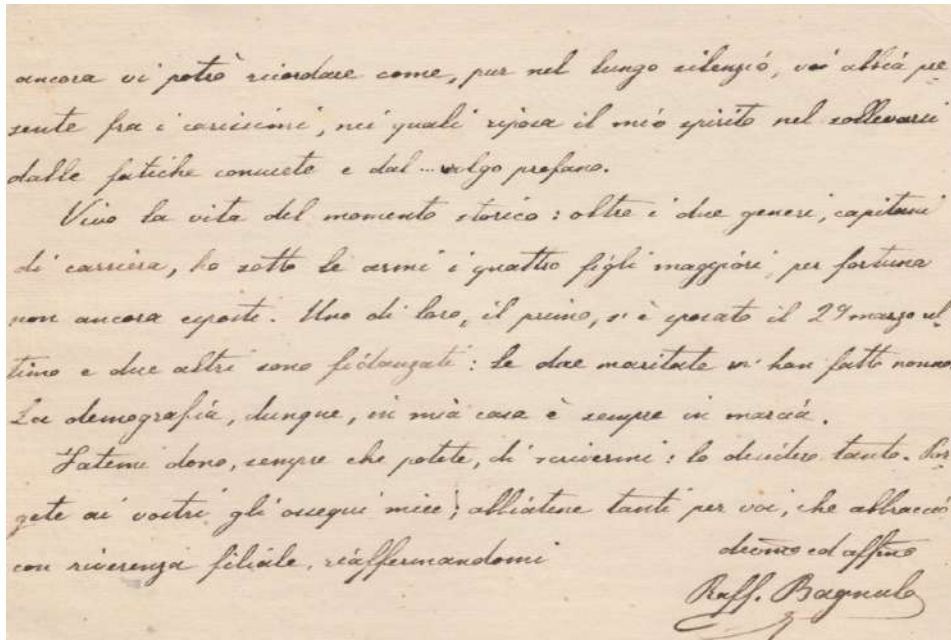 ancora vi potrò ricordare come, pur nel lungo silenzio, voi abbia pre-
sente fra i carissimi, nei quali riposa il mio spirito nel sollevarsi
dalle fatiche consuete e dal ... volgo profano.
Vivo la vita del momento storico: oltre i due generi, capitani
di carriera, ho sotto le armi i quattro figli maggiori, per fortuna
non ancora esposti. Uno di loro, il primo, si è sposato il 29 marzo ul-
timo e due altri sono fidanzati: le due maritate mi han fatto nonno.
La demografia, dunque, in mia casa è sempre in marcia.
Fatemi dono, sempre che potete, di scrivermi: lo desidero tanto. Por-
gete ai vostri gli ossequi miei; abbiatene tanti per voi, che abbraccio
con riverenza filiale, riaffermandomi
devmo ed affmo
Raff. Bagnulo